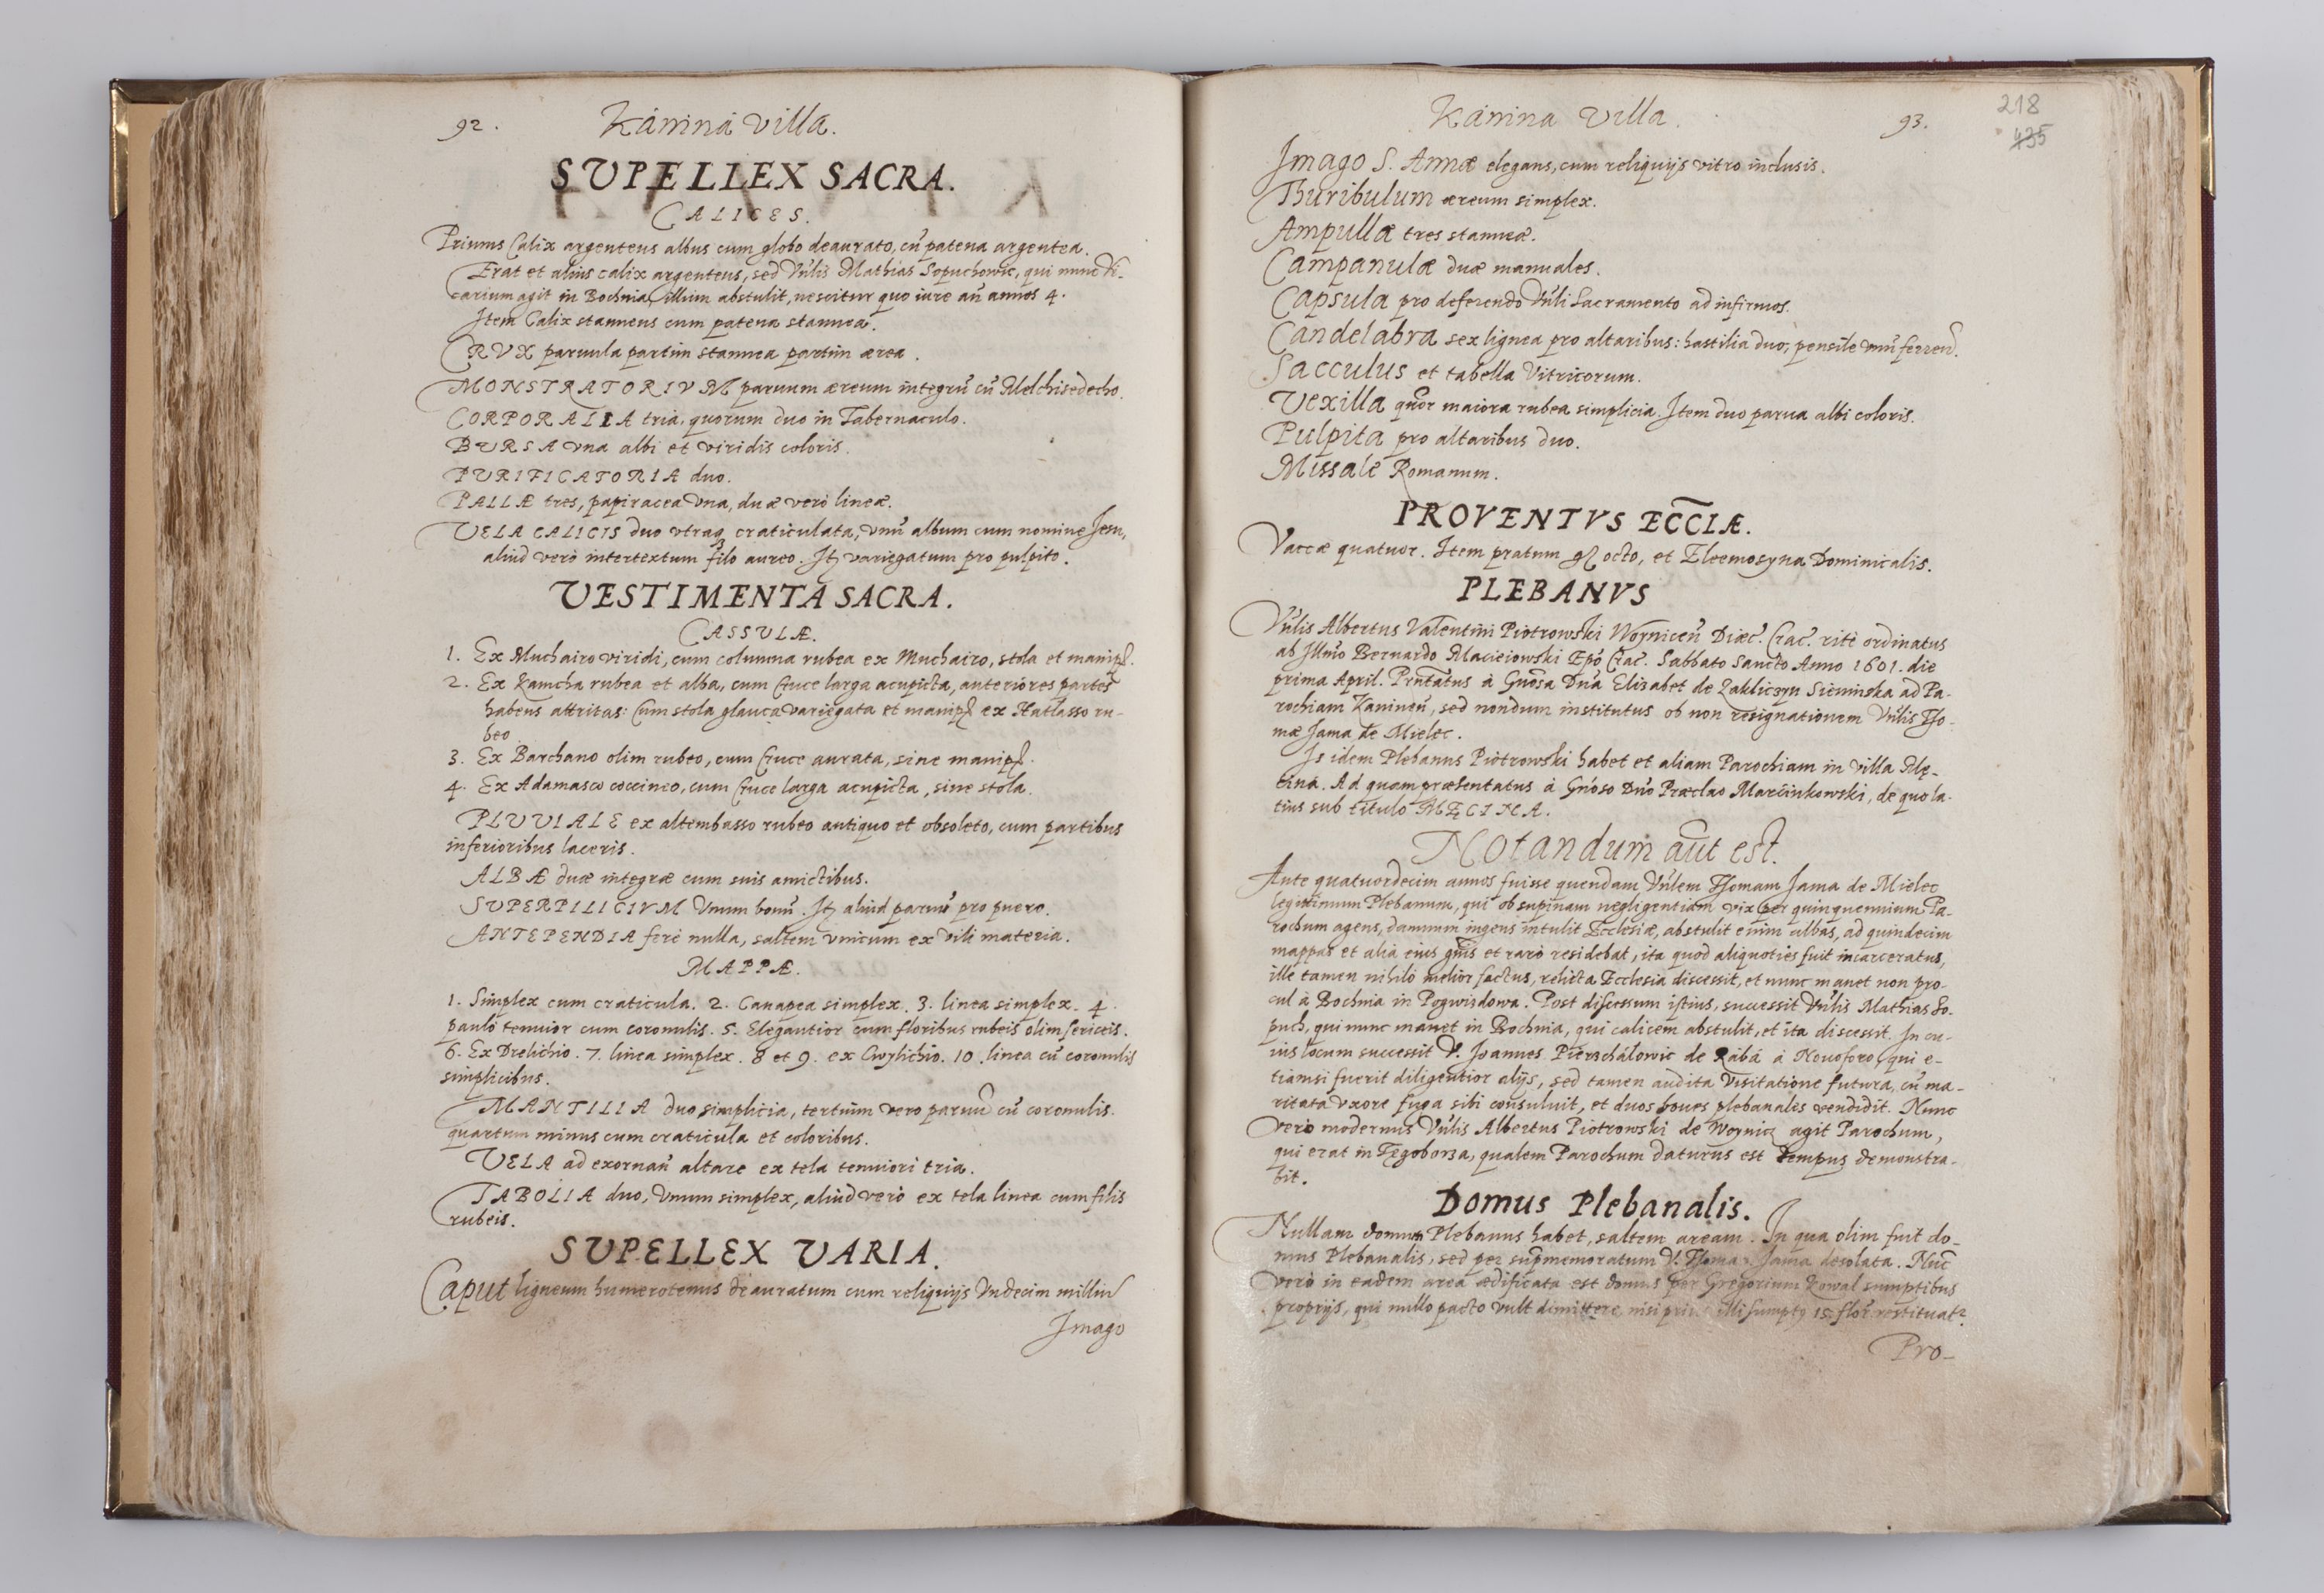 92.
Kánina villa.
SUPELLEX SACRA.
CALICES.
Primus Calix argenteus albus cum globo deaurato, cũ patena argentea.
Erat et alius calix argenteus, sed Vńlis Mathias Sopuchowic, qui nunc Vi-
carium agit in Bochnia, illum abstulit, nescitur quo iure añ annos 4.
Item Calix stanneus cum patena stannea.
CRUX paruula partim stannea partim ærea.
MONSTRATORIUM paruum æreum integrũ cũ Melchisedecho.
CORPORALIA tria, quorum duo in Tabernaculo.
BURSA vna albi et viridis coloris.
PURIFICATORIA duo.
PALLÆ tres, papiracea Vna, duæ verò lineæ.
VELA CALICIS duo vtraq craticulata, vnũ album cum nomine Jesu,
aliud verò intertextum filo aureo. Itȝ variegatum pro pulpito.
VESTIMENTA SACRA.
CASSULÆ.
1. Ex Muchairo viridi, cum columna rubea ex Muchairo, stola et manipł.
2. Ex Kamcha rubea et alba, cum Cruce larga acupicta, anteriores partes
habens attritas: Cum stola glauca variegata et manipł ex Hatłasso ru-
beo.
3. Ex Barchano olim rubeo, cum Cruce aurata, sine manipł.
4. Ex Adamasco coccineo, cum Cruce larga acupicta, sine stola.
PLUVIALE ex altembasso rubeo antiquo et obsoleto, cum partibus
inferioribus laceris.
ALBÆ duæ integræ cum suis amictibus.
SUPERPILICIUM Vnum bonũ. Itȝ aliud paruũ pro puero.
ANTEPENDIA ferè nulla, saltem vnicum ex vili materia.
MAPPÆ.
1. Simplex cum craticula. 2. Canapea simplex. 3. linea simplex. 4.
paulò tenuior cum coronulis. 5. Elegantior cum floribus rubeis olim sericeis.
6. Ex Drelichio. 7. linea simplex. 8 et 9. ex Cwylichio. 10. linea cũ coronulis
simplicibus.
MANTILIA duo simplicia, tertium vero paruũ cũ coronulis.
quartum minus cum craticula et coloribus.
VELA ad exornañ altare ex tela tenuiori tria.
TABOLIA duo, Vnum simplex, aliud verò ex tela linea cum filis
rubeis.
SUPELLEX VARIA.
Caput ligneum humerotenus deauratum cum reliquijs Vndecim milliũ
Imago
Kánina Villa.
93.
218
435
Imago S. Annæ elegans, cum reliquijs vitro inclusis.
Thuribulum æreum simplex.
Ampullæ tres stanneæ.
Campanulæ duæ manuales.
Capsula pro deferendo Vńli Sacramento ad infirmos.
Candelabra sex lignea pro altaribus: hastilia duo, pensile vnũ ferreũ.
Sacculus et tabella Vitricorum.
Vexilla quor maiora rubea simplicia. Item duo parua albi coloris.
Pulpita pro altaribus duo.
Missale Romanum.
PROVENTVS ECCIÆ.
Vaccæ quatuor. Item pratum octo, et Eleemosyna Dominicalis.
PLEBANVS
Vńlis Albertus Valentini Piotrowski Woyniceñ Diæc. Crac. ritè ordinatus
ab Illmo Bernardo Macieiowski Epo Crac. Sabbato Sancto Anno 1601. die
prima April. Pntatus à Gnosa Dna Elisabet de Zakliczyn Sieninska ad Pa-
rochiam Kanineñ, sed nondum institutus ob non resignationem Vńlis Tho-
mæ Jama de Mielec.
Is idem Plebanus Piotrowski habet et aliam Parochiam in villa Mę-
cina. Ad quam præsentatus à Gnoso Dno Præclao Marcinkowski, de quo la-
tius sub titulo MĘCINA.
Notandum aũt est.
Ante quatuordecim annos fuisse quendam Vńlem Thomam Jama de Mielec
legittimum Plebanum, qui ob supinam negligentiam vix per quinquennium Pa-
rochum agens, damnum ingens intulit Ecclesiæ, abstulit enim albas, ad quindecim
mappas et alia eius gñis et rarò residebat, ita quod aliquoties fuit incarceratus,
ille tamen nihilò melior factus, relicta Ecclesia discessit, et nunc manet non pro-
cul à Bochnia in Pogwizdowa. Post discessum istius, successit Vńlis Mathias So-
puch, qui nunc manet in Bochnia, qui calicem abstulit, et ita discessit. In cu-
ius locum successit V. Joannes Pierzchálowic de Rábá à Nouoforo, qui e-
tiamsi fuerit diligentior alijs, sed tamen audita Visitatione futura, cũ ma-
ritata vxore fuga sibi consuluit, et duos boues plebanales vendidit. Nunc
verò modernus Vńlis Albertus Piotrowski de Woynicȝ agit Parochum,
qui erat in Tęgoborza, qualem Parochum daturus est tempus demonstra-
bit.
Domus Plebanalis.
Nullam domum Plebanus habet, saltem aream. In qua olim fuit do-
mus Plebanalis, sed per supmemoratum V. Thomam Jama desolata. Nũc
verò in eadem area ædificata est domus per Gregorium Kowal sumptibus
proprijs, qui nullo pacto vult dimittere nisi prius illi sumptȝ 15 flor restituat.
Pro-